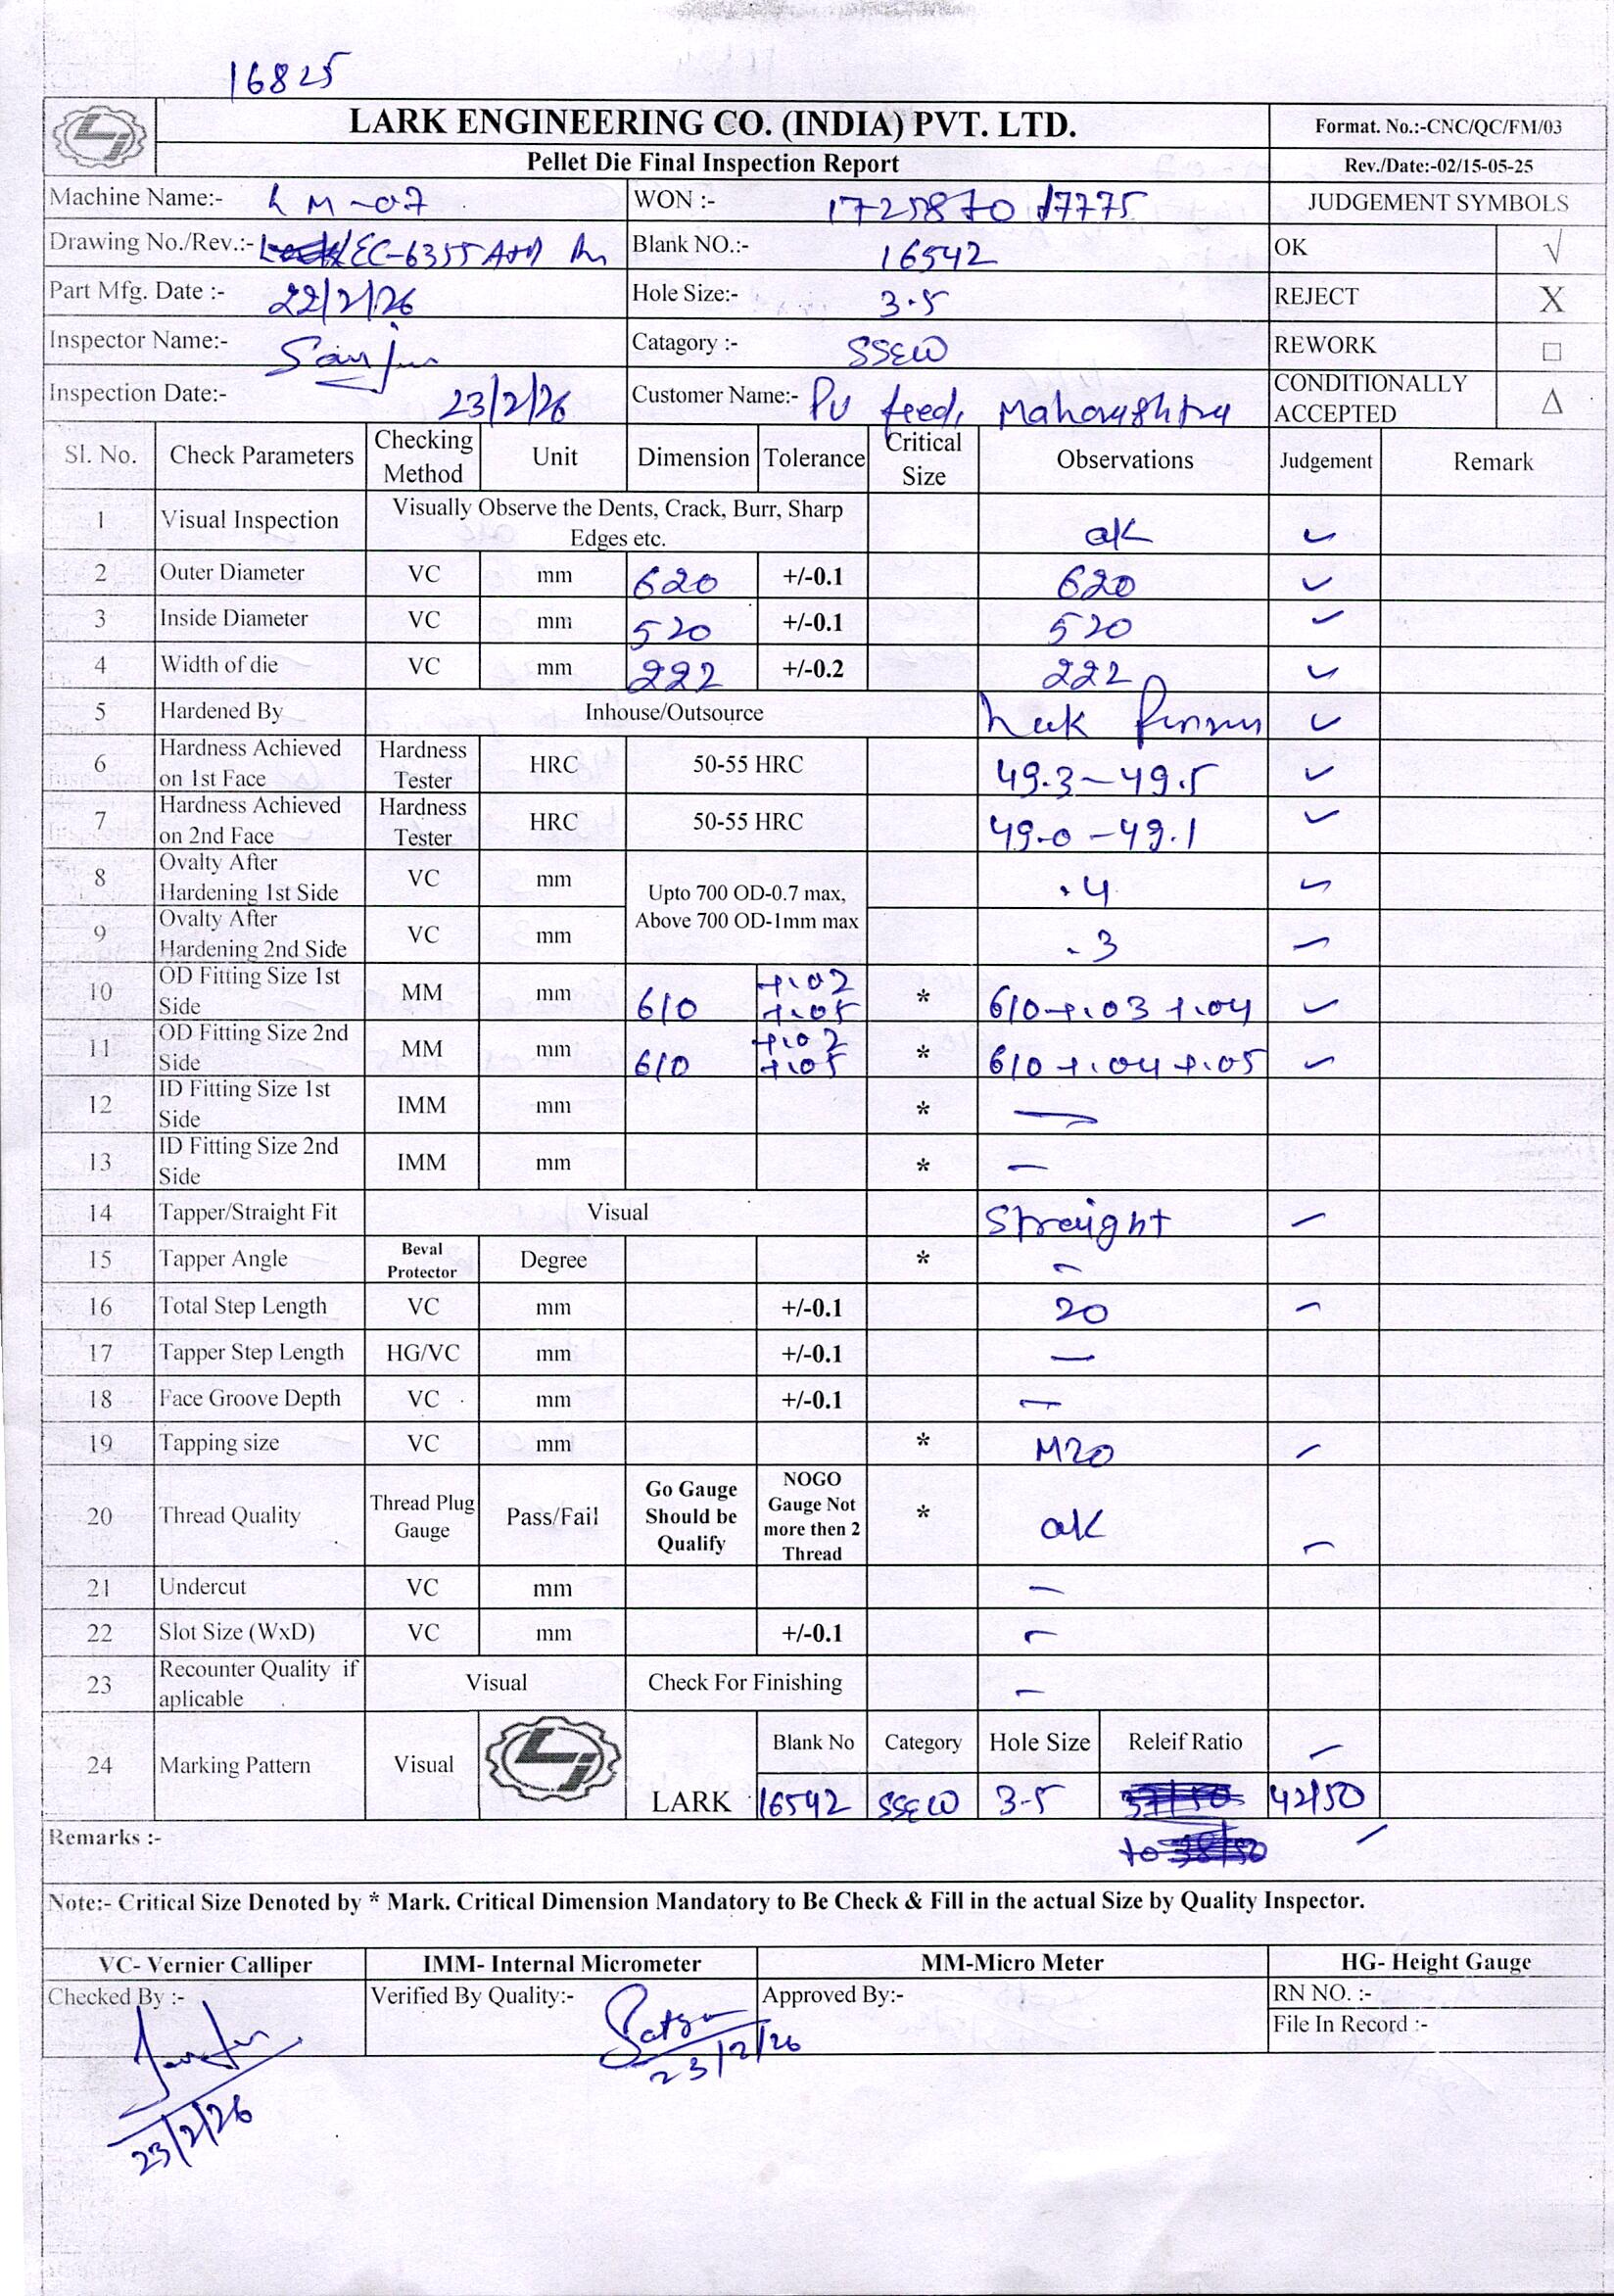 16825
LARK ENGINEERING CO. (INDIA) PVT. LTD. Format. No.:-CNC/QC/FM/03
Pellet Die Final Inspection Report Rev./Date:-02/15-05-25
Machine Name:- LM-07 WON :- 1725870 17775 JUDGEMENT SYMBOLS
Drawing No./Rev.:- EC-6355 Blank NO.:- 16542 OK √
Part Mfg. Date :- 22/2/26 Hole Size:- 3.5 REJECT X
Inspector Name:- Sanju Catagory :- SSEW REWORK □
Inspection Date:- 23/2/26 Customer Name:- PU feed, Maharashtra CONDITIONALLY ACCEPTED Δ
Sl. No. Check Parameters Checking Method Unit Dimension Tolerance Critical Size Observations Judgement Remark
1 Visual Inspection Visually Observe the Dents, Crack, Burr, Sharp Edges etc. ok ✓
2 Outer Diameter VC mm 620 +/-0.1 620 ✓
3 Inside Diameter VC mm 520 +/-0.1 520 ✓
4 Width of die VC mm 222 +/-0.2 222 ✓
5 Hardened By Inhouse/Outsource ✓
6 Hardness Achieved on 1st Face Hardness Tester HRC 50-55 HRC 49.3-49.5 ✓
7 Hardness Achieved on 2nd Face Hardness Tester HRC 50-55 HRC 49.0-49.1 ✓
8 Ovalty After Hardening 1st Side VC mm Upto 700 OD-0.7 max, Above 700 OD-1mm max .4 ✓
9 Ovalty After Hardening 2nd Side VC mm .3 ✓
10 OD Fitting Size 1st Side MM mm 610 +.02 +.05 * 610 +.03 +.04 ✓
11 OD Fitting Size 2nd Side MM mm 610 +.02 +.05 * 610 +.04 +.05 ✓
12 ID Fitting Size 1st Side IMM mm * —
13 ID Fitting Size 2nd Side IMM mm * —
14 Tapper/Straight Fit Visual Straight ✓
15 Tapper Angle Beval Protector Degree * —
16 Total Step Length VC mm +/-0.1 20 ✓
17 Tapper Step Length HG/VC mm +/-0.1 —
18 Face Groove Depth VC mm +/-0.1 —
19 Tapping size VC mm * M20 ✓
20 Thread Quality Thread Plug Gauge Pass/Fail Go Gauge Should be Qualify NOGO Gauge Not more then 2 Thread * ok ✓
21 Undercut VC mm —
22 Slot Size (WxD) VC mm +/-0.1 —
23 Recounter Quality if aplicable Visual Check For Finishing —
24 Marking Pattern Visual LARK Blank No Category Hole Size Releif Ratio ✓
16542 SSEW 3.5 42/50
Remarks :- to ✓
Note:- Critical Size Denoted by * Mark. Critical Dimension Mandatory to Be Check & Fill in the actual Size by Quality Inspector.
VC- Vernier Calliper IMM- Internal Micrometer MM-Micro Meter HG- Height Gauge
Checked By :- Verified By Quality:- Approved By:- RN NO. :-
File In Record :-
23/2/26
23/2/26